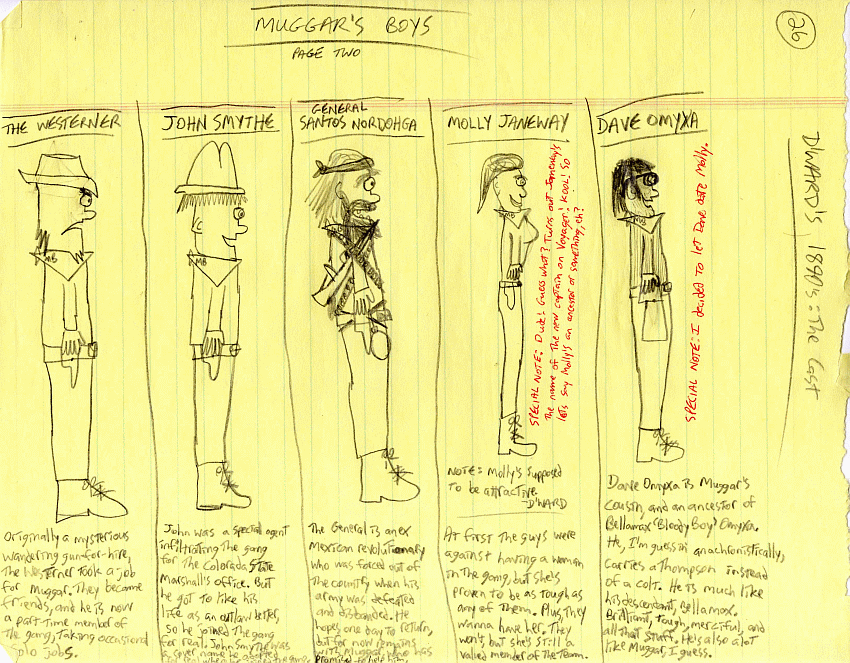 MUGGAR'S BOYS
PAGE TWO
26
D'WARD'S 1890's: The Cast
THE WESTERNER
MB
Originally a mysterious
wandering gun-for-hire,
the Westerner took a job
for Muggar. They became
friends, and he is now
a part time member of
the gang, taking occasional
solo jobs.
JOHN SMYTHE
MB
John was a special agent
infiltrating the gang
for the Colorado State
Marshall's office. But
he got to like his
life as an outlaw better,
so he joined the gang
for real. John Smythe was
GENERAL
SANTOS NORDOHGA
The General is an ex
Mexican revolutionary
who was forced out of
the country when his
army was defeated
and disbanded. He
hopes one day to return,
but for now remains
with Muggar, who has
promised to help him.
MOLLY JANEWAY
MB
SPECIAL NOTE: Dude! Guess what? Turns out Janeway's
the name of the new captain on Voyager! Kool! So
let's say Molly's an ancestor or something, eh?
NOTE: Molly's supposed
to be attractive.
-D'WARD
At first the guys were
against having a woman
in the gang, but she's
proven to be as tough as
any of them. Plus, they
wanna have her. They
won't, but she's still a
valued member of the team.
DAVE OMYXA
MB
SPECIAL NOTE: I decided to let Dave date Molly.
Dave Omyxa is Muggar's
cousin, and an ancestor of
Bellamax 'Bloody Boy' Omyxa.
He, I'm guessin anachronistically,
carries a Thompson instead
of a colt. He is much like
his descendant, Bellamax.
Brilliant, tough, merciful, and
all that stuff. He's also a lot
like Muggar, I guess.